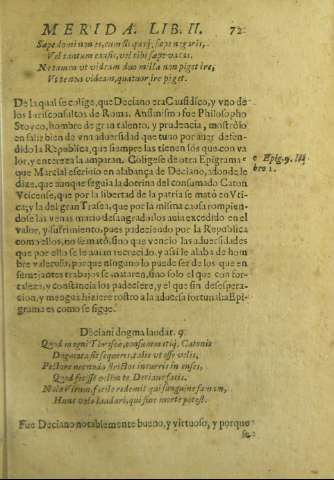 MERIDA. LIB. II. 72
Sæpe domi non es, cum sis quoq; sæpe negaris,
Vel tantum causis, vel tibi sæpe vacas.
Ne tamen vt videam duo millia non piget ire,
Vt te non videam, quatuor ire piget.
De la qual se colige, que Deciano era Causidico, y vno de
los Iurisconsultos de Roma. Assimismo fue Philosopho
Stoyco, hombre de gran talento, y prudencia, mostrólo
en salir bien de vna aduersidad que tuuo por auer defen-
dido la Republica, que siempre las tienen los que con va-
lor, y entereza la amparan. Coligese de otro Epigrama
e Epig. 9. li
bro 1.
que Marcial escriuio en alabança de Deciano, adonde le
dize, que aunque seguia la dotrina del consumado Caton
Vticense, que por la libertad de la patria se mató en Vti-
ca, y la del gran Trasea, que por la misma causa rompien-
dose las venas murio desangrado: los auia excedido en el
valor, y sufrimiento, pues padeciendo por la Republica
como ellos, no se mató, sino que vencio las aduersidades
que por ello se le auian recrecido, y assi le alaba de hom
bre valeroso, porque ninguno lo puede ser de los que en
semejantes trabajos se mataren, sino solo el que con for-
taleza, y constancia los padeciere, y el que sin desespera-
cion, y mengua hiziere rostro a la aduersa fortuna. la Epi-
grama es como se sigue.
Deciani dogma laudat. 9.
Quod magni Thraseæ, consummatiq; Catonis
Dogmata sic sequeris, saluus vt esse velis,
Pectore nec nudo strictos incurris in enses,
Quod fecisse velim te Deciane facis.
Nolo Virum, facili redemit qui sanguine famam,
Hunc volo laudari, qui sine morte potest.
Fue Deciano notablemente bueno, y virtuoso, y porque